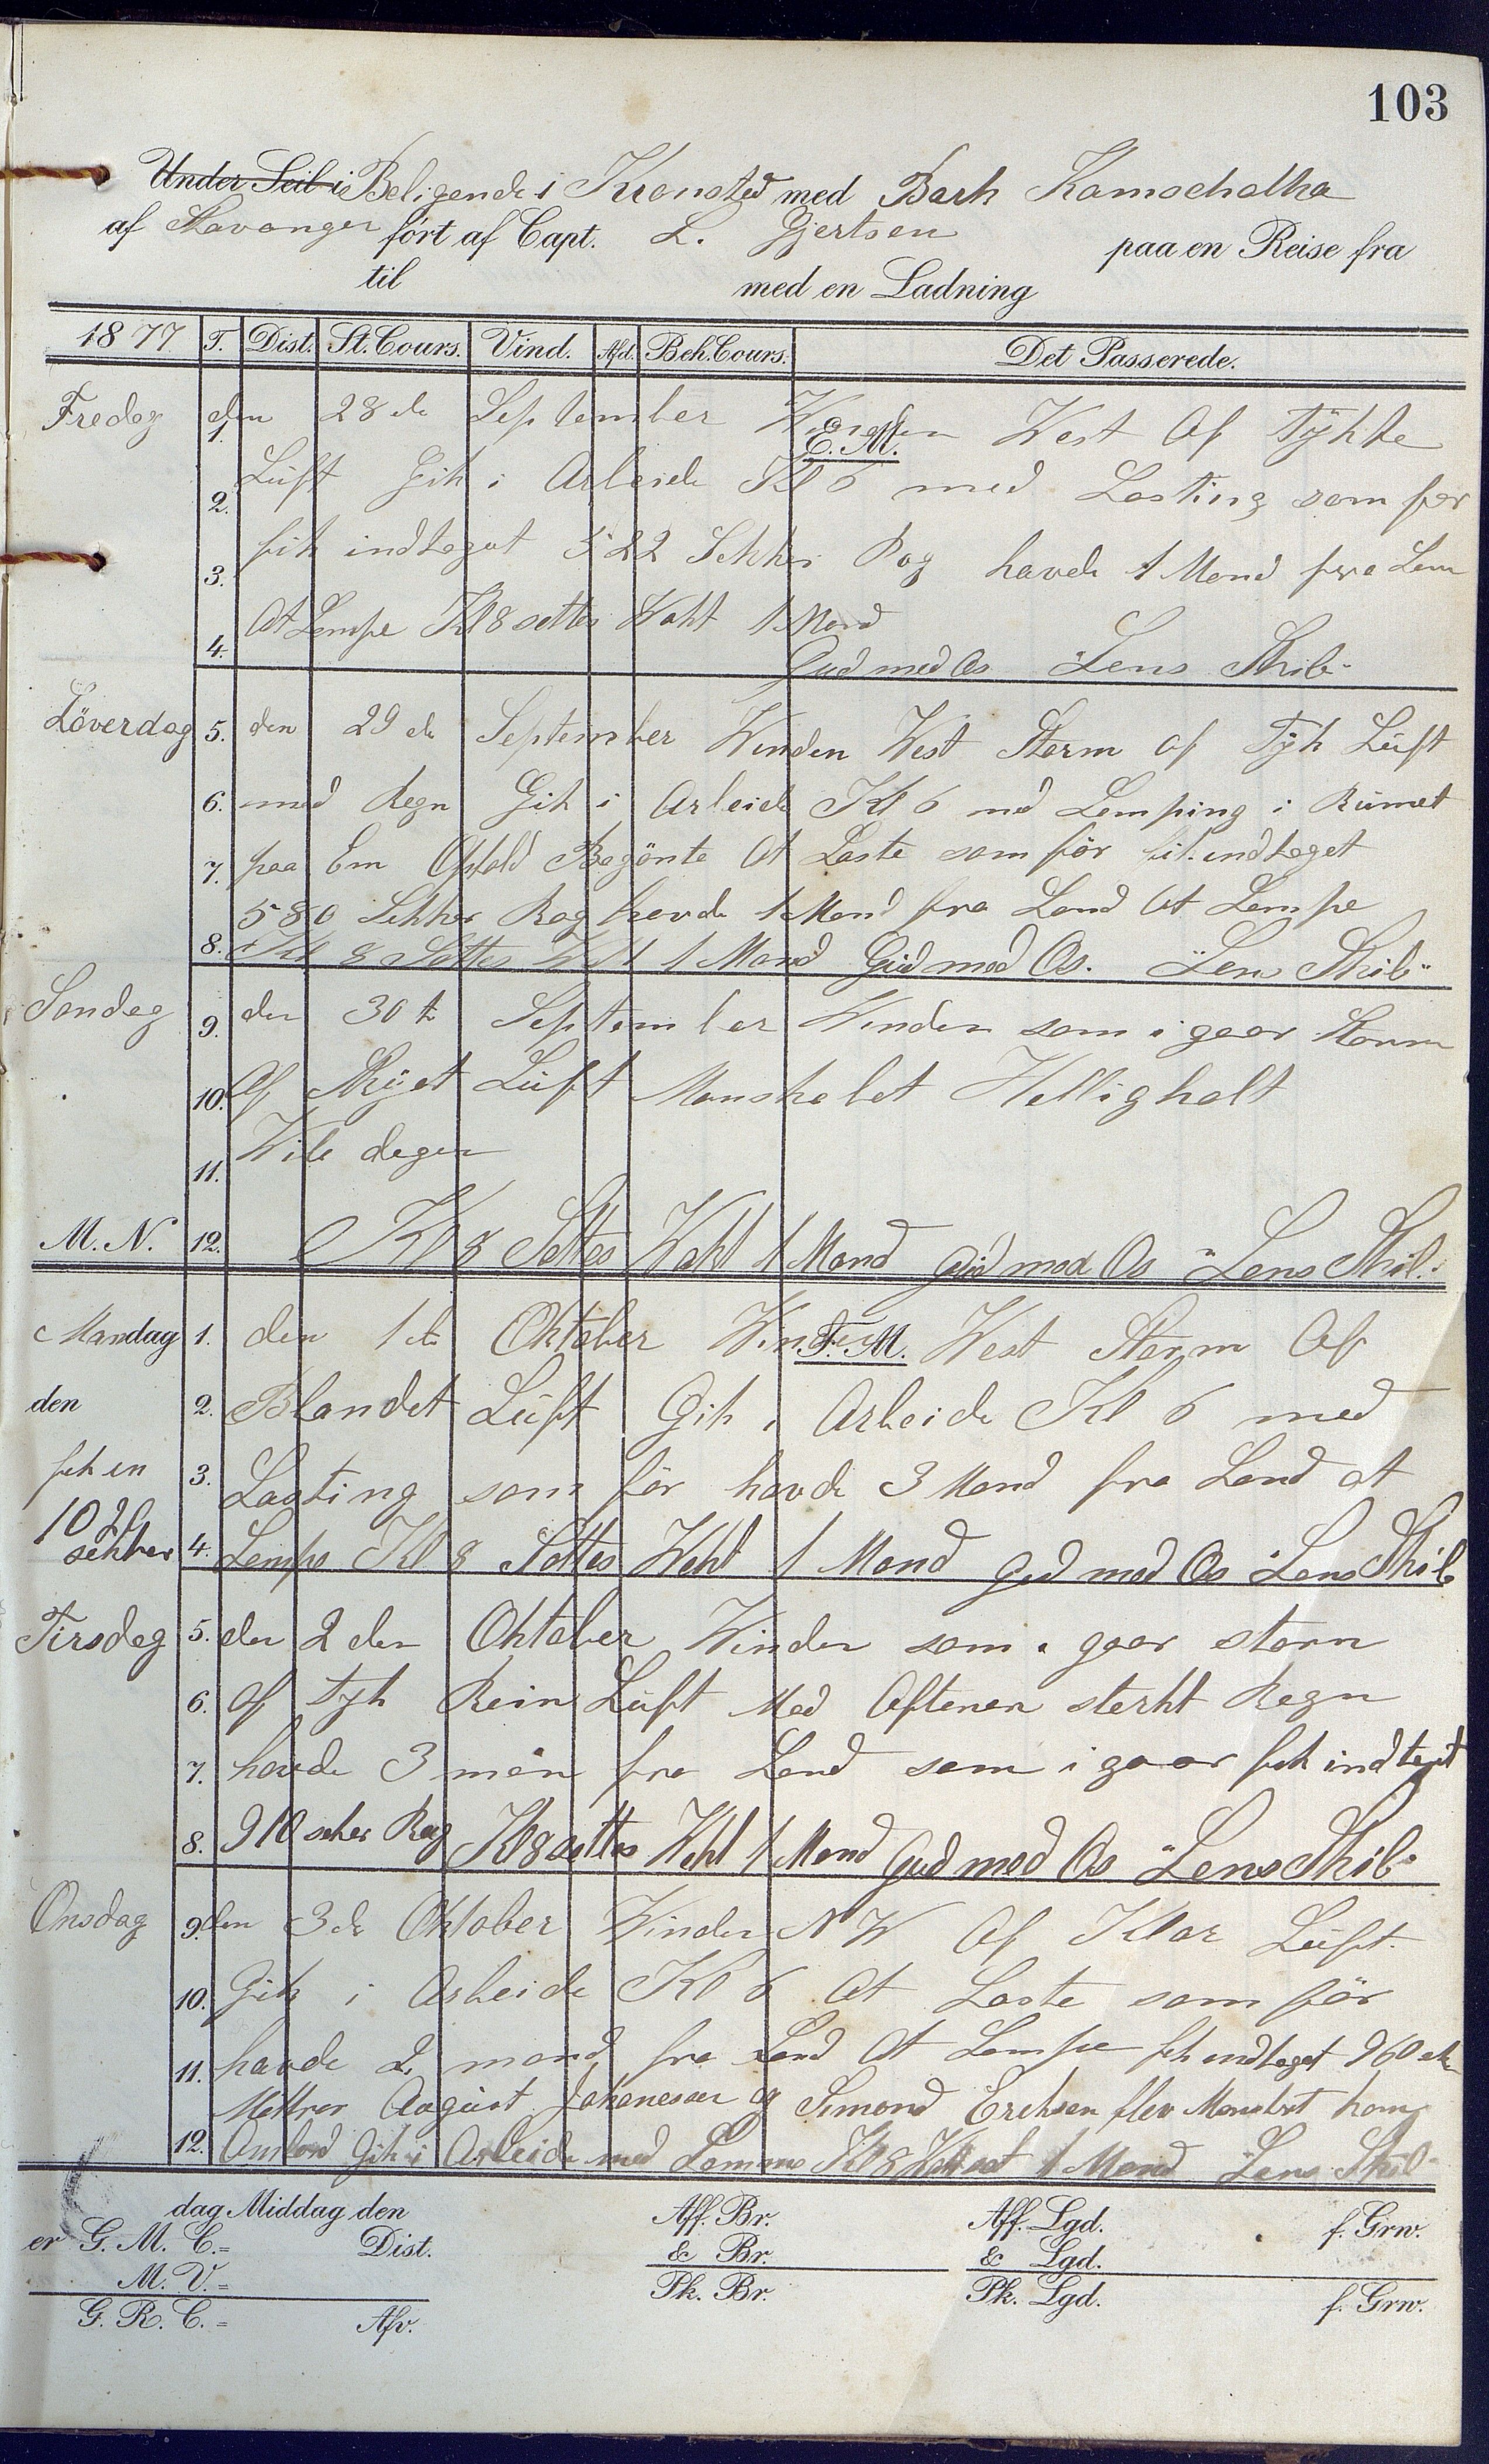 103
Under Seil i Beligende i Kronsted med Bark Kamschatka
af Stavanger ført af Capt. L. Gjertsen paa en Reise fra
til med en Ladning
1877 T. Dist. St. Cours. Vind. Afd. Beh. Cours. Det Passerede.
Fredag den 28de September Winden West Af Tÿkke
1. E. M.
2. Luft Gik i Arbeide Kl 6 med Lasting som før
3. fik indtaget 522 Sekker Rog havde 1 Mand fra Lan
4. At Lempe Kl 8 settes Wakt 1 Mand
Gud med Os Lens Skib
Löverdag 5. den 29de September Winden West Storm af Tÿk Luft
6. med Regn Gik i Arbeide Kl 6 md Lemping i Rumet
7. paa Em Ophold Begönte At Laste som för fik indtaget
580 Sekker Rog havde 1 Mand fra Land At Lempe
8. Kl 8 Settes Wakt 1 Mand Gud med Os. Lens Skib
Søndag 9. den 30te September Winden som i gaar Storm
10. Af Skÿet Luft Manskabet Hellighalt
11. Wile dagen
M. N. 12. Kl 8 Settes Wakt 1 Mand Gud med Os Lens Skib
Mandag 1. den 1de Oktober Winden West Storm Af
F. M.
den 2. Blandet Luft Gik i Arbeide Kl 6 med
fik en 3. Lasting som för havde 3 Mand fra Land at
1020
sekker 4. Lempe Kl 8 Settes Wakt 1 Mand Gud med Os Lens Skib
Tirsdag 5. den 2den Oktober Winden som i gaar storm
6. af tyk Rein Luft Med Aftenen sterkt Regn
7. havde 3 man fra Land som i gaar fik indtagit
8. 910 seker Rog Kl 8 settes Wakt 1 Mand Gud med Os Lens Skib
Onsdag 9. den 3de Oktober Winden NW Af Klar Luft.
10. Gik i Arbeide Kl 6 At Laste som för
11. havde 2 mand fra Land At Lempe fik indtaget 960 sek
Mattros August Johanesen og Simond Erehsen blev Manstret ham
12. Ambord Gik i Arbeide med 1 Mand Lens Skib
dag Middag den Aff. Br. Aff. Lgd. f. Grw.
er G. M. C.= Dist. & Br. & Lgd.
M. V.=
G. R. C.= Afv. Pk. Br. Pk. Lgd. f. Grw.